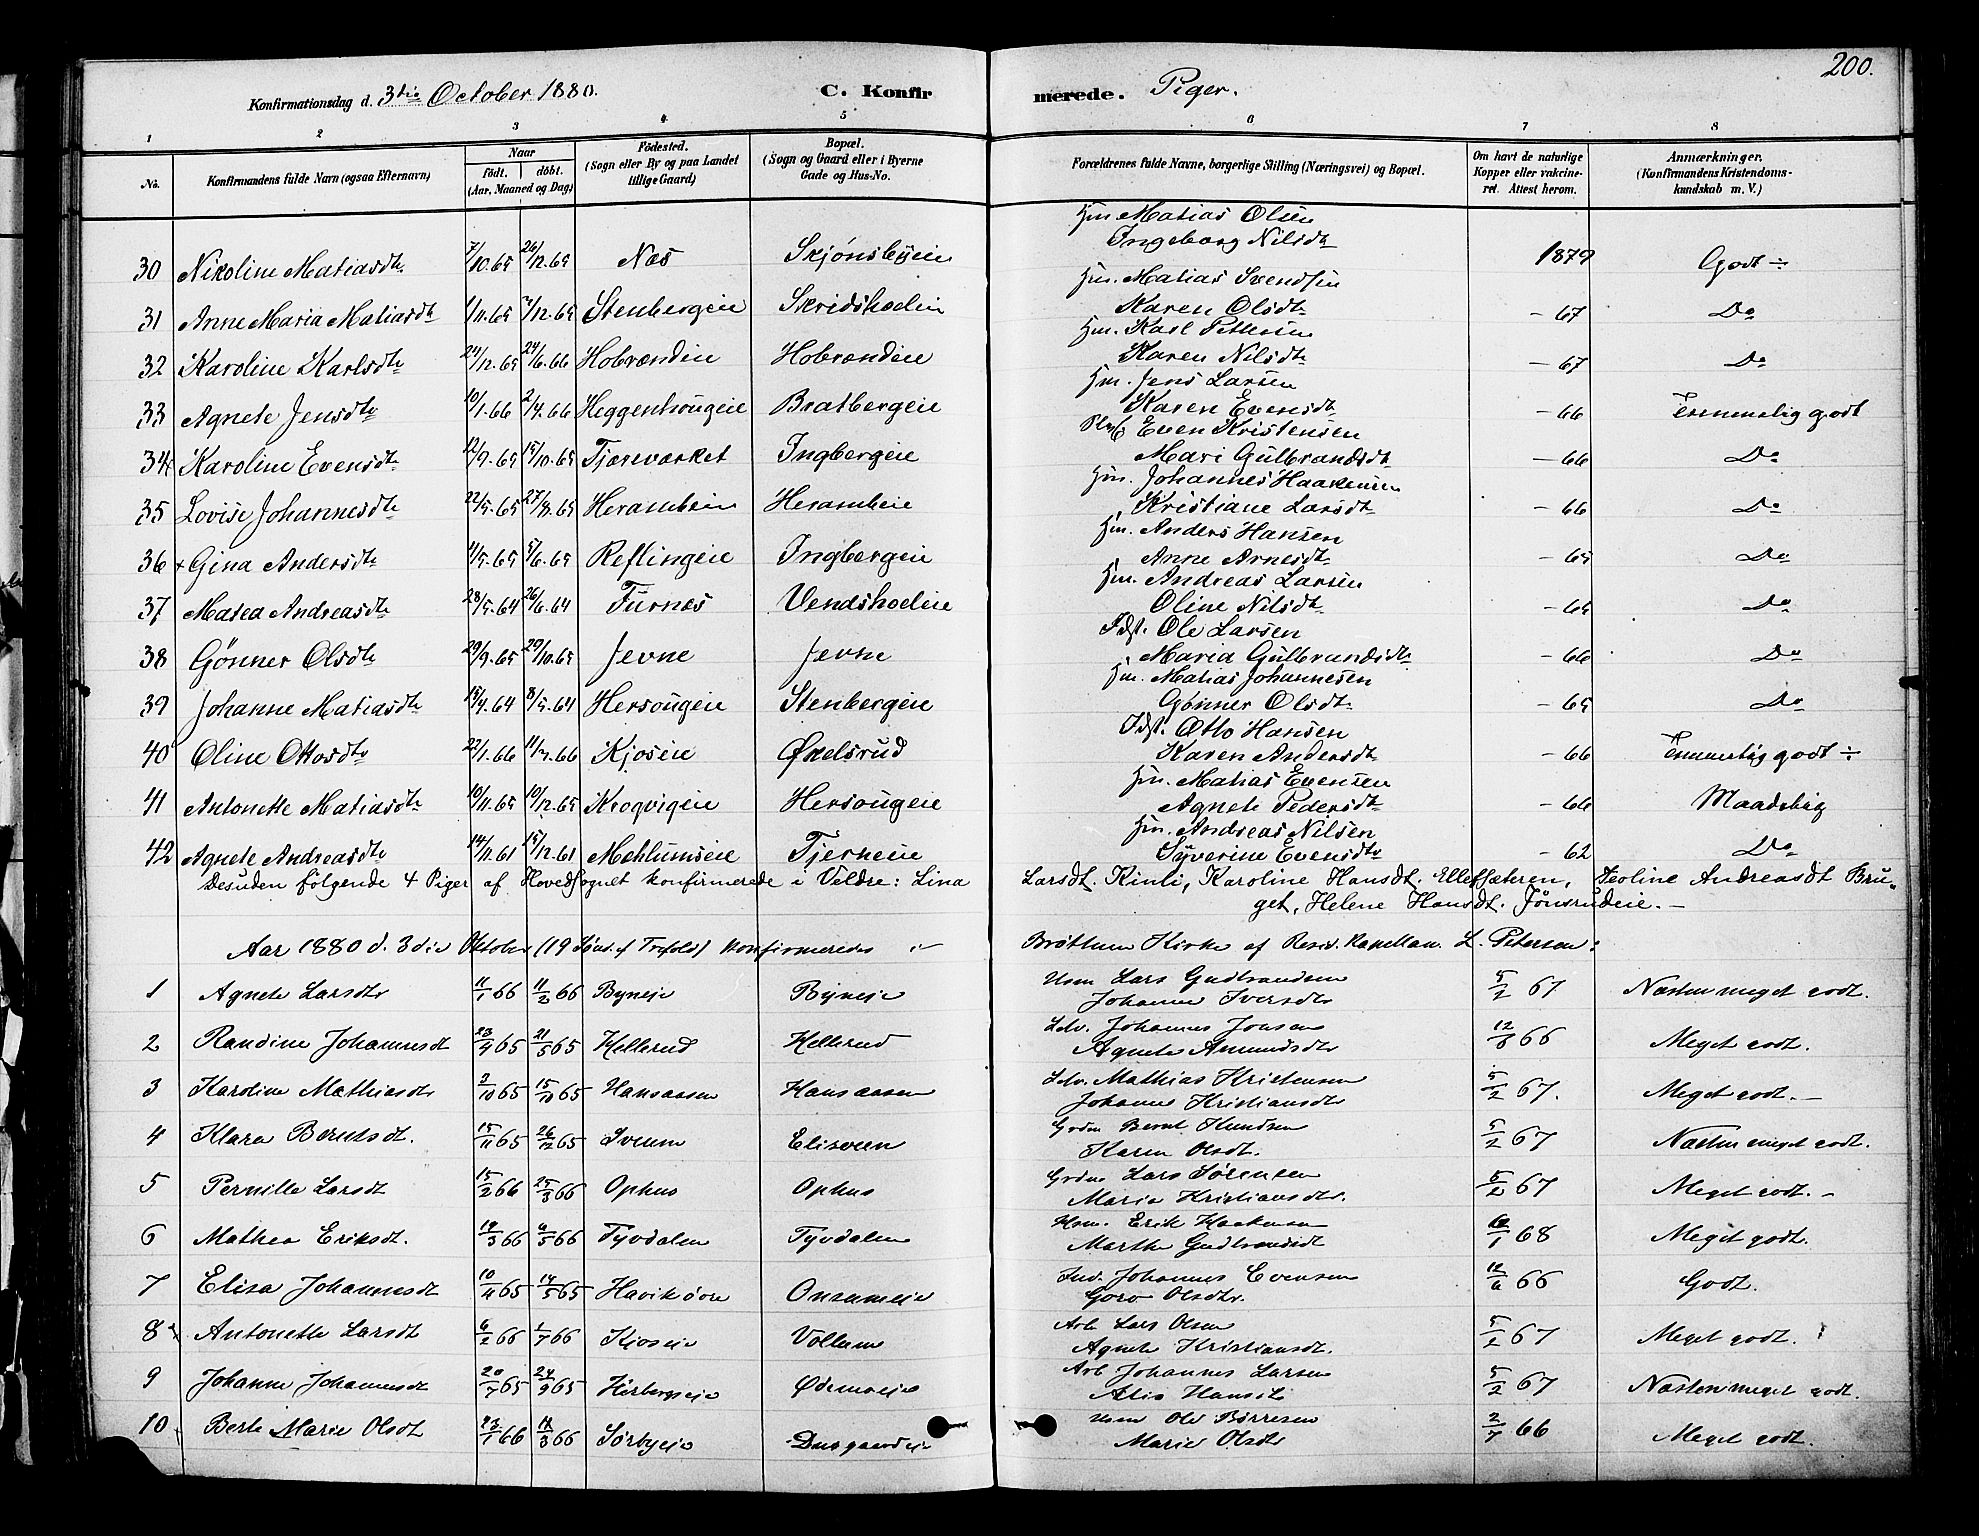 200.
Konfirmationsdag d. 3die October 1880. C. Konfirmerede. Piger.
1 2 3 4 5 6 7 8
No. Konfirmandens fulde Navn (ogsaa Efternavn) Naar födt. döbt. (Aar, Maaned og Dag) Födested. (Sogn eller By og paa Landet tillige Gaard) Bopæl. (Sogn og Gaard eller i Byerne Gade og Hus-No. Forældrenes fulde Navne, borgerlige Stilling (Næringsvei) og Bopæl. Om havt de naturlige Kopper eller vakcineret. Attest herom. Anmærkninger. (Konfirmandens Kristendomskundskab m. V.)
Hm. Matias Olsen
30 Nikoline Matiasdtr 7/10.65 26/12.65 Næs Skjønsbyeie Ingeborg Nilsdtr 1879 Godt ÷
Hm. Matias Svendsen
31 Anne Maria Matiasdtr 1/11.65 /12.65 Stenbergeie Skridsholeie Karen Olsdtr - 67 Do
Hm. Karl Pettersen
32 Karoline Karlsdtr 24/12.65 24/6.66 Hobrændeie Hobrændeie Karen Nilsdtr - 67 Do
Hm. Jens Larsen
33 Agnete Jensdtr 10/1.66 2/4.66 Heggenhougeie Bratbergeie Karen Evensdtr - 66 Temmelig godt
Even Kristensen
34 Karoline Evensdtr 12/9.65 15/10.65 Tjernværket Ingbergeie Mari Gulbrandsdtr - 66 Do
Hm. Johannes Haakensen
35 Lovise Johannesdtr 22/5.65 27/8.65 Herambeie Herambeie Kristiane Larsdtr - 66 Do
Hm. Anders Hansen
36 Gina Andersdtr 4/5.65 5/6.65 Reflingeie Ingbergeie Anne Arnesdtr - 65 Do
Hm. Andreas Larsen
37 Matea Andreasdtr 28/5.64 26/6.64 Furnæs Vendsholeie Oline Nilsdtr - 65 Do
Idst. Ole Larsen
38 Gønner Olsdtr 29/9.65 29/10.65 Jevne Jevne Maria Gulbrandsdtr - 66 Do
Hm. Matias Johannesen
39 Johanne Matiasdtr 15/4.64 8/5.64 Hersougeie Stenbergeie Gønner Olsdtr - 65 Do
Idst. Otto Hansen
40 Oline Ottosdtr 22/1.66 11/3.66 Kjoseie Øxelsrud Karen Andersdtr - 66 Temmelig godt ÷
Hm. Matias Evensen
41 Antonette Matiasdtr 10/11.65 10/12.65 Krogvigeie Hersougeie Agnete Pedersdtr - 66 Maadelig
Hm. Andreas Nilsen
42 Agnete Andreasdtr 14/11.61 15/12.61 Mæhlumseie Tjerneie Syverine Evensdtr - 62 Do
Desuden følgende 4 Piger af Hovedsognet konfirmerede i Veldre: Lina Larsdt. Kinli, Karoline Hansdt. Ellefsæteren, Teoline Andreasdt Bru-
get, Helene Hansdt. Jønsrudeie. -
Aar 1880 d. 3die Oktober (19 Sønd. e/ Trefold) konfirmeredes i Brøttum Kirke af Resid. Kapellan L. Petersen:
Hsm Lars Gudbrandsen
1 Agnete Larsdtr 11/1 66 11/2 66 Byneje Byneje Johanne Iversdtr 5/2 67 Næsten meget godt.
Selv. Johannes Jonsen
2 Randine Johannesdt 23/4 65 21/5 65 Hellerud Hellerud Agnete Amundsdtr 12/8 66 Meget godt.
Selv. Mathias Kristensen
3 Karoline Mathiasdtr 2/10 65 15/10 65 Hansaasen Hansaasen Johanne Kristiansdtr 5/2 67. Meget godt. -
Grdm Bernt Knudsen
4 Klara Berntsdt. 15/11 65 26/12 65 Sveum Elisveen Karen Olsdt. 5/2 67 Næsten meget godt.
Grdm Lars Sørensen
5 Pernille Larsdt 15/2 66 25/3 66 Ophus Ophus Marie Kristiansdtr. 5/2 67 Meget godt. -
Hsm. Erik Haakensen
6 Mathea Eriksdt. 19/3 66 6/5 66 Tyvdalen Tyvdalen Marthe Gudbrandsdt /1 68 Meget godt.
Ind. Johannes Evensen
7 Elisa Johannesdt 10/4 65 14/5 65 Havikøre Onsumeie Goro Olsdtr. 12/6 66 Godt.
Arb Lars Olsen
8 Antonette Larsdt 6/2 66 1/7 66 Kjoseie Vollum Agnete Kristiansdt. 5/2 67 Meget godt.
Arb Johannes Larsen
9 Johanne Johannesdt 20/7 65 24/9 65 Hørbergseie Ødemoeie Alis Hansdt 5/2 67 Næsten meget godt.
Hsm Ole Børresen
10 Berte Marie Olsdt 23/1 66 18/3 66 Sørbyeie Marie Olsdtr 2/7 66 Meget godt.